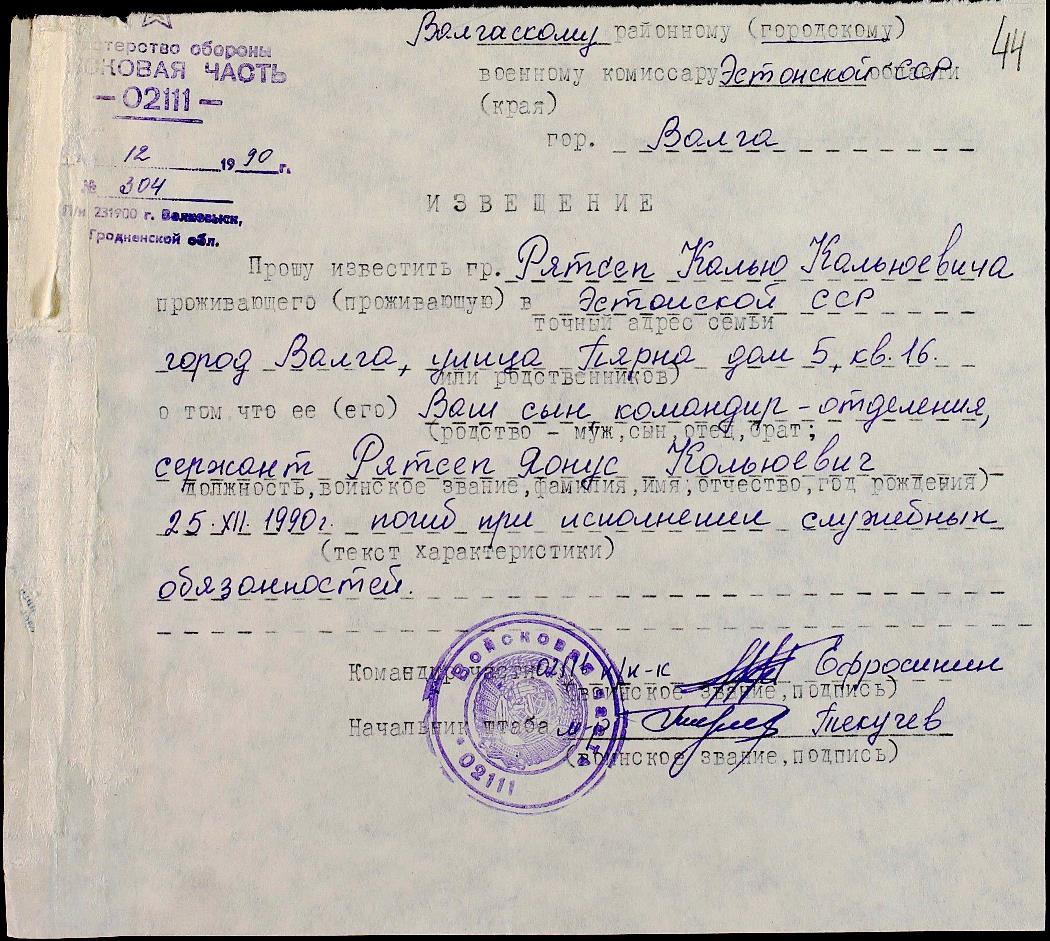 44
Министерство обороны
ВОЙСКОВАЯ ЧАСТЬ
— 02111 —
12 1990 г.
№ 304
П/И 231900 г. Волковыск,
Гродненской обл.
Валгаскому районному (городскому)
военному комиссару Эстонской ССР области
(края)
гор. Валга
ИЗВЕЩЕНИЕ
Прошу известить гр. Рятсеп Калью Кальюевича
проживающего (проживающую) в Эстонской ССР
точный адрес семьи
город Валга, улица Пярна дом 5, кв. 16.
или родственников)
о том что ее (его) Ваш сын командир-отделения,
(родство - муж, сын, отец, брат;
сержант Рятсеп Яонус Кальюевич
должность, воинское звание, фамилия, имя, отчество, год рождения)
25.XII.1990г. погиб при исполнении служебных
(текст характеристики)
обязанностей.
Командир части 02111 п/п-к Ефросинин
(воинское звание, подпись)
Начальник штаба м-р Текучев
(воинское звание, подпись)
ВОЙСКОВАЯ ЧАСТЬ
02111